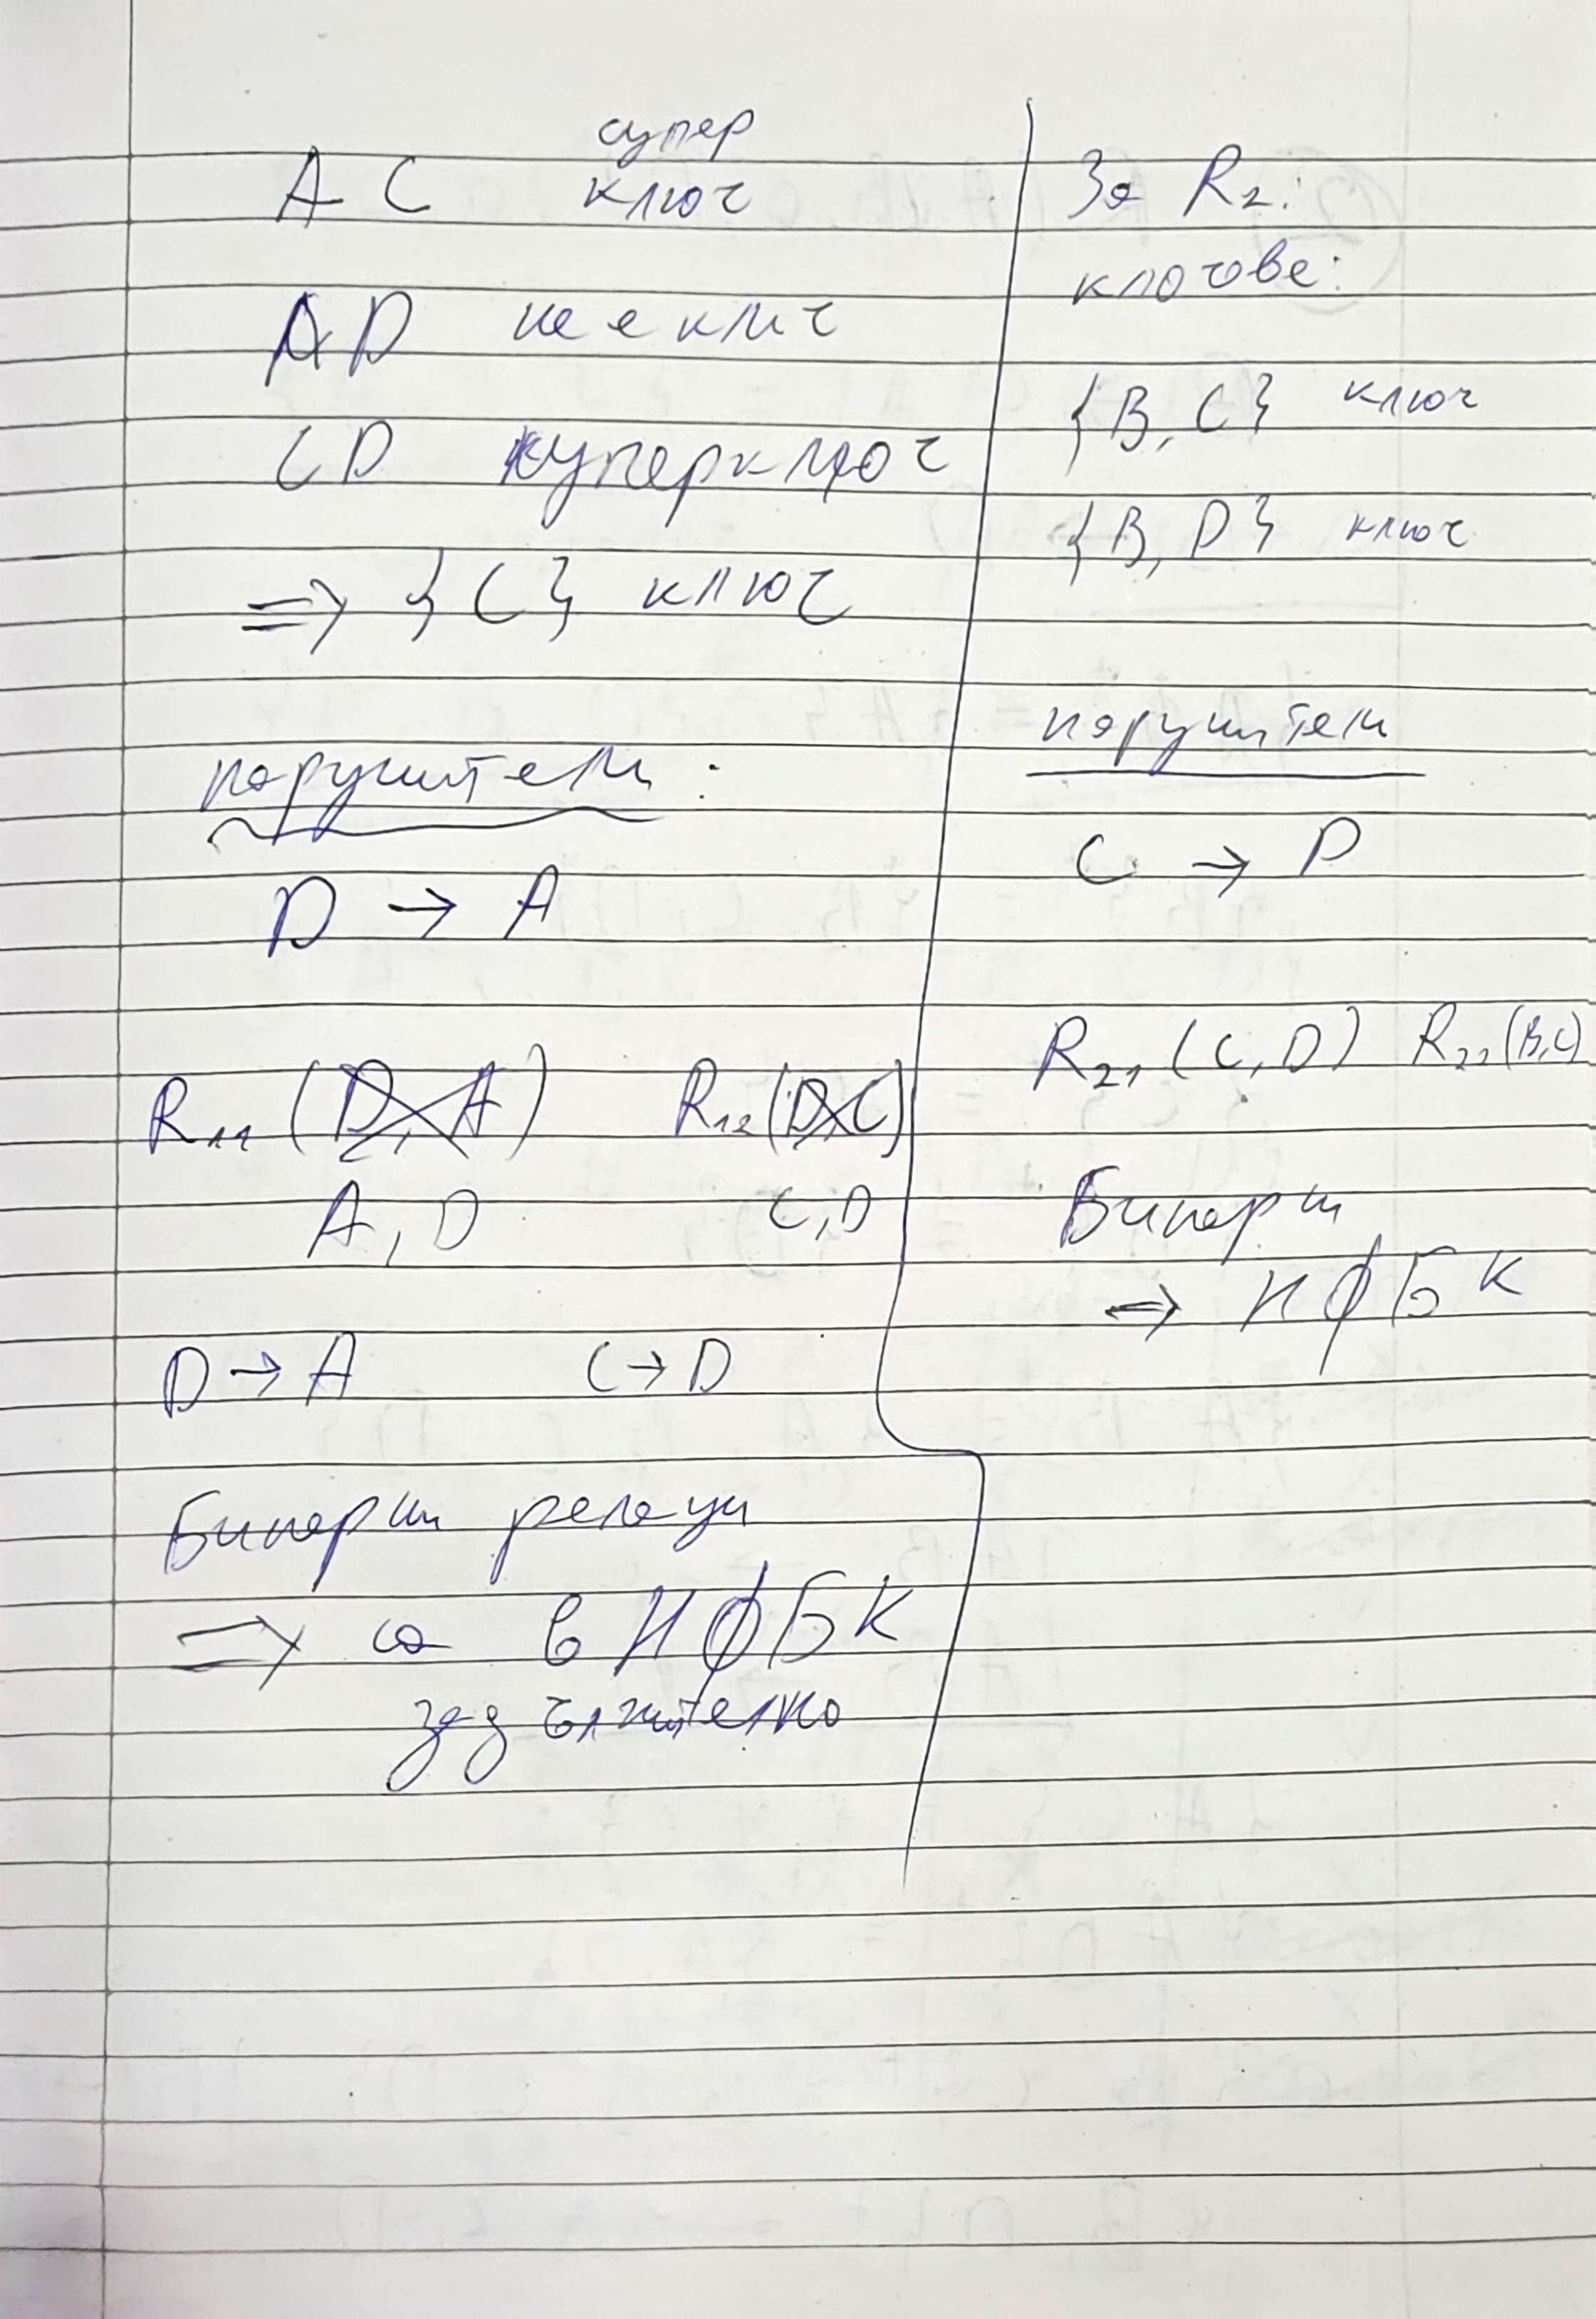 AC супер
ключ
AD не е ключ
CD суперключ
=> {C} ключ
нарушители:
D → A
R₁₁ (D, A) R₁₂ (D, C)
A, D C, D
D → A C → D
Бинарни релации
=> са в НФБК
задължително
За R₂:
ключове:
{B, C} ключ
{B, D} ключ
нарушители
C → D
R₂₁ (C, D) R₂₂ (B, C)
Бинарни
=> НФБК